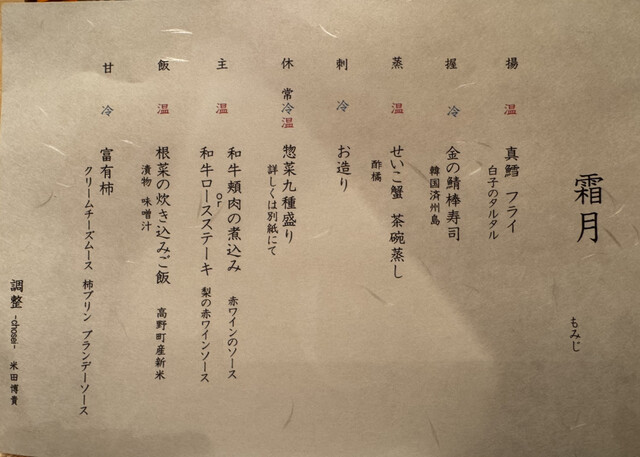 霜月
もみじ
揚 温 真鱈 フライ
白子のタルタル
握 冷 金の鯖棒寿司
韓国済州島
蒸 温 せいこ蟹 茶碗蒸し
酢橘
刺 冷 お造り
休 常冷温 惣菜九種盛り
詳しくは別紙にて
主 温 和牛頬肉の煮込み 赤ワインのソース
or
和牛ロースステーキ 梨の赤ワインソース
飯 温 根菜の炊き込みご飯 高野町産新米
漬物 味噌汁
甘 冷 富有柿
クリームチーズムース 柿プリン ブランデーソース
調整 -chosei- 米田博貴